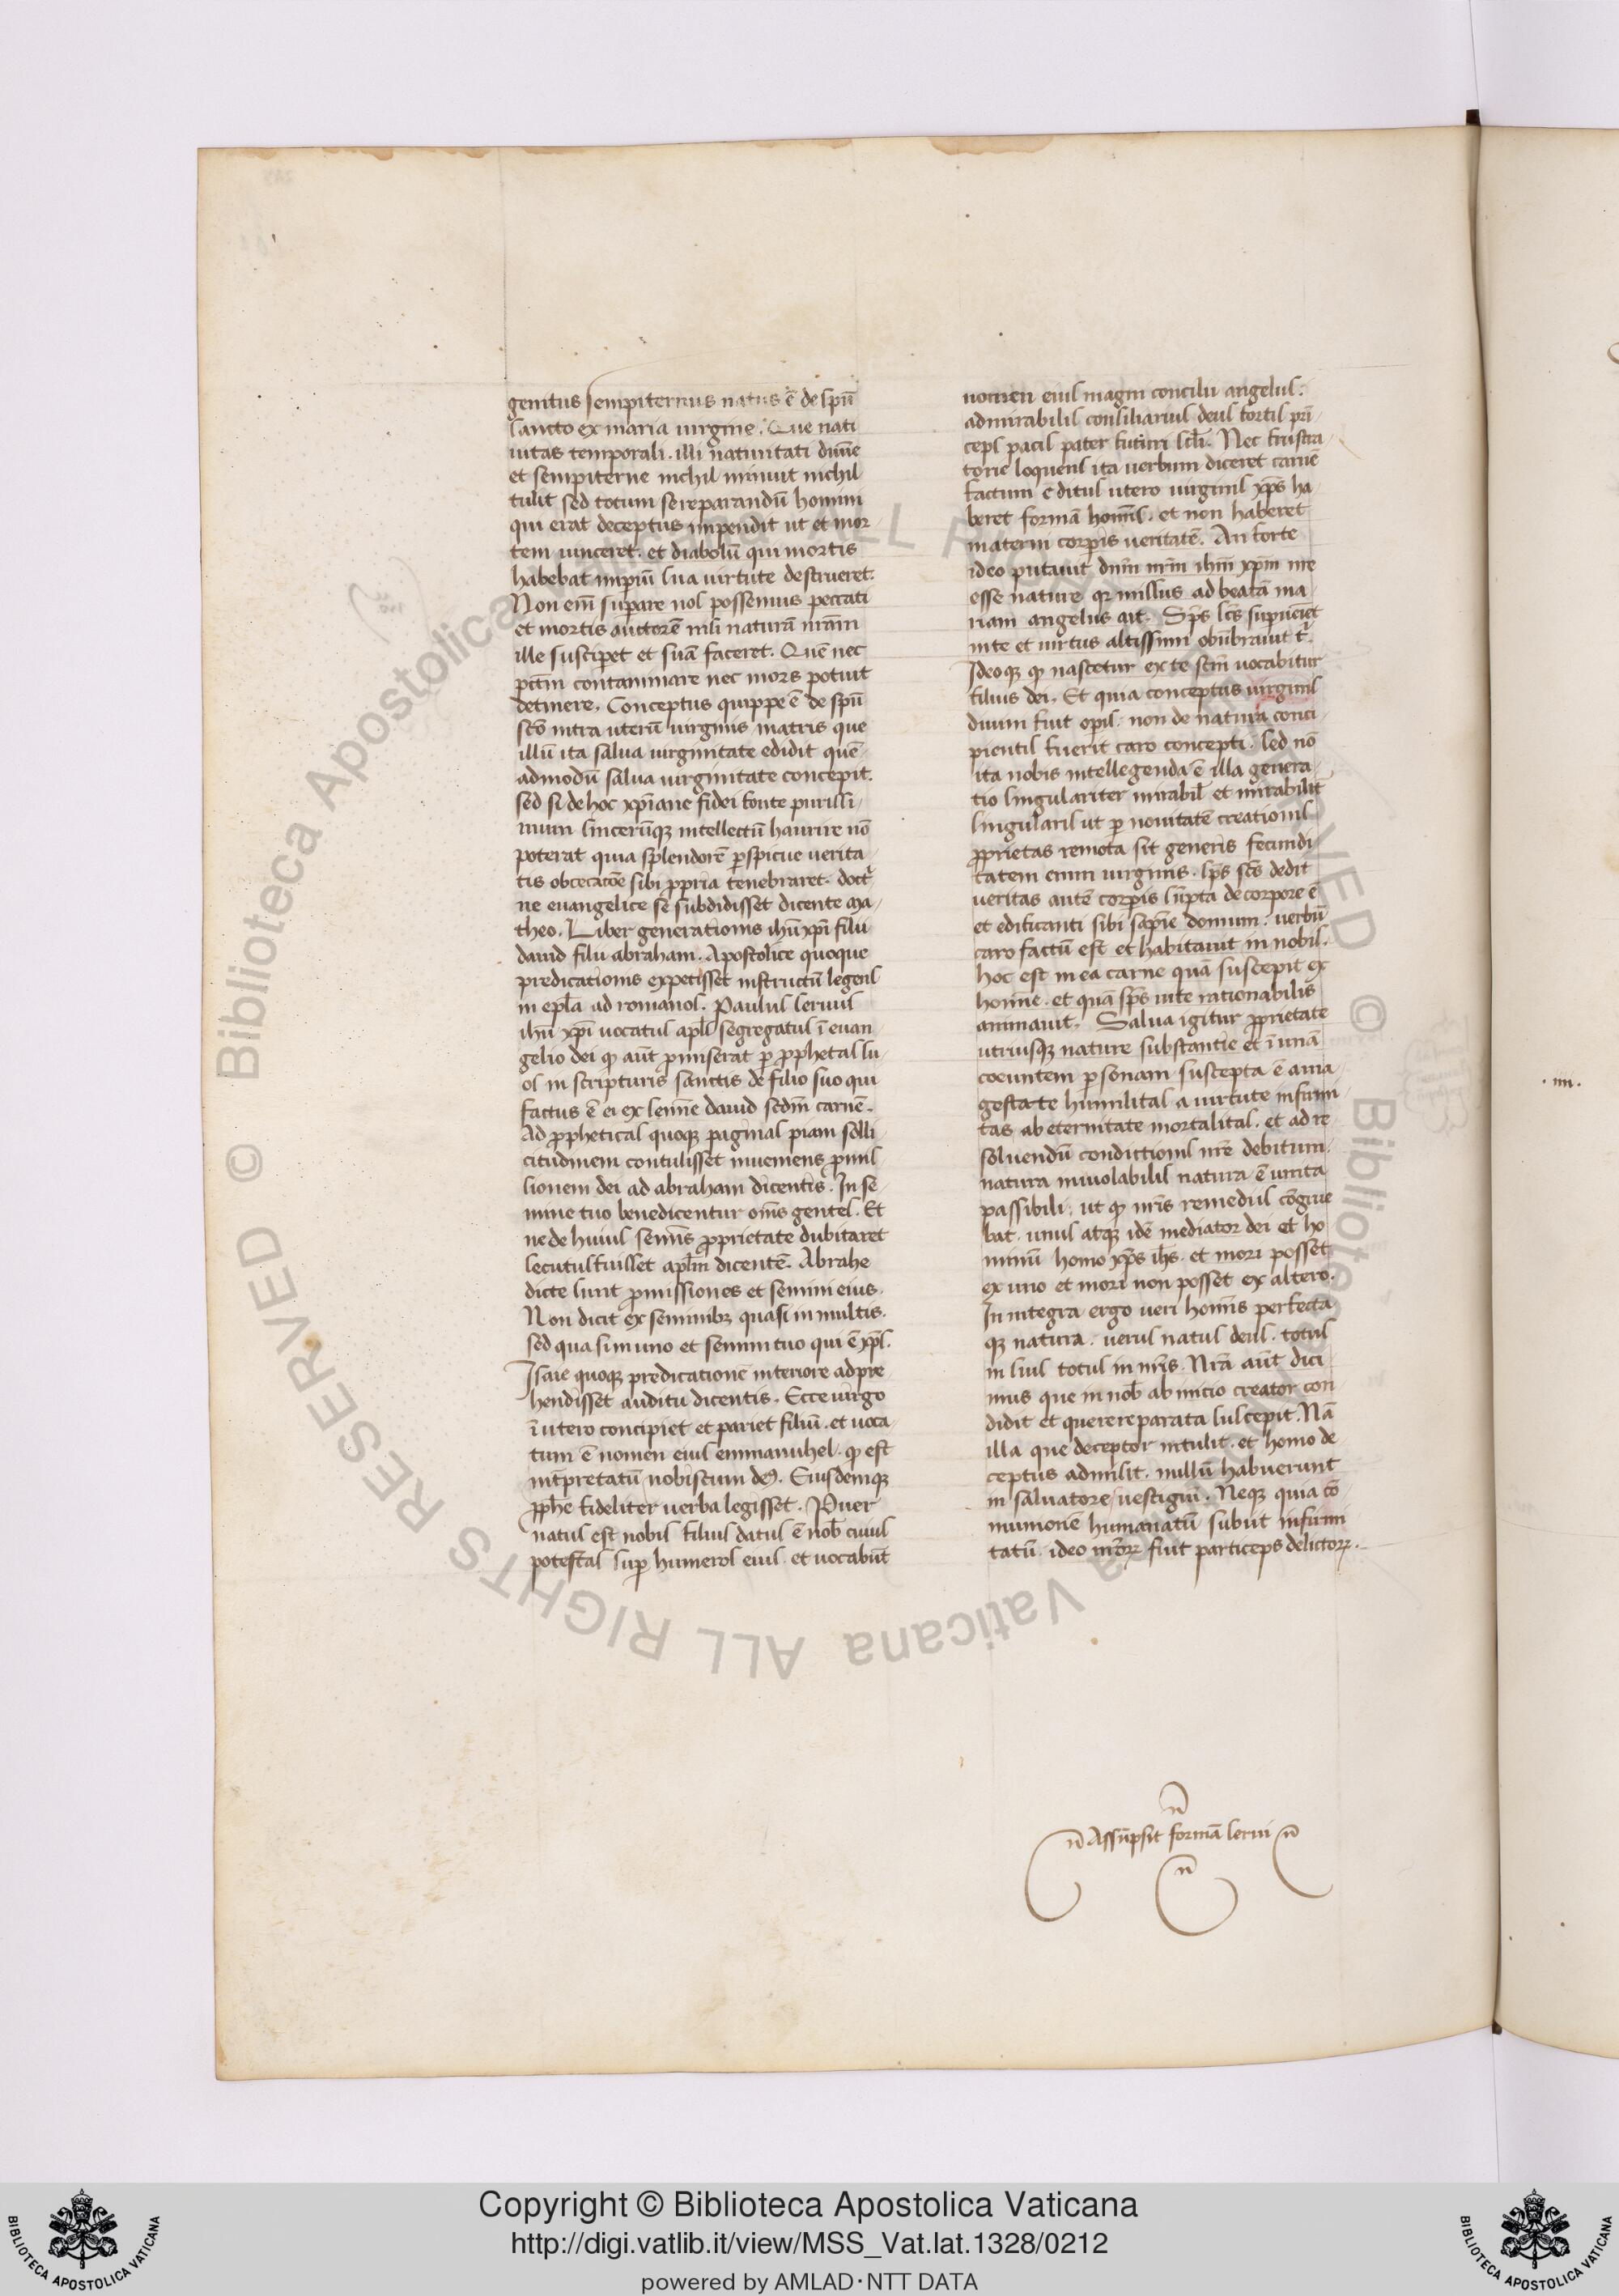 genitus sempiternus natus ē de spū
sancto ex maria uirgine. Que nati
uitas temporali. illi natiuitati diuīe
et sempiterne nichil minuit nichil
tulit sed totum se reparandū homini
qui erat deceptus impendit ut et mor
tem uinceret. et diabolū qui mortis
habebat impiū sua uirtute destrueret.
Non eīm supare nos possemus peccati
et mortis auctorē nisi naturā nrām
ille suscipet et suā faceret. Quē nec
pctm̄ contaminare nec mors potuit
detinere. Conceptus quippe ē de spū
scō intra uterū uirginis matris que
illū ita salua uirginitate edidit quē
admodū salua uirginitate concepit.
Sed si de hoc xp̄iane fidei fonte purissi
mum sincerūqꝫ intellectū haurire nō
poterat quia splendorē pspicue uerita
tis obcecatōe sibi ppria tenebraret. doctr̄
ne euangelice se subdidisset dicente ma
theo. Liber generationis ihū xp̄i filii
dauid filii abraham. Apostolice quoque
predicationis expetisset instructū legens
in epl̄a ad romanos. Paulus seruus
ihū xp̄i uocatus apl̄s segregatus ī euan
gelio dei qđ aūt pmiserat p pphetas su
os in scripturis sanctis de filio suo qui
factus ē ei ex semīe dauid scdm̄ carnē.
Ad ppheticas quoqꝫ paginas piam solli
citudinem contulisset inueniens pmis
sionem dei ad abraham dicentis. In se
mine tuo benedicentur om̄s gentes. Et
ne de huius semīs pprietate dubitaret
secutus fuisset aplm̄ dicentē. Abrahe
dicte sunt pmissiones et semini eius.
Non dicit ex seminibꝫ quasi in multis.
sed quasi in uno et semini tuo qui ē xp̄s.
Isaie quoqꝫ predicationē interiore adpre
hendisset auditu dicentis. Ecce uirgo
ī utero concipiet et pariet filiū. et uoca
tum ē nomen eius emmanuhel. qđ est
int̄pretatū nobiscum deꝰ. Eiusdemqꝫ
pphe fideliter uerba legisset. Puer
natus est nobis filius datus ē nob̄ cuius
potestas sup humeros eius. et uocabūt
nomen eius magni concilii angelus.
admirabilis consiliarius deus fortis prī
ceps pacis pater futuri scl̄i. Nec frustra
torie loquens ita uerbum diceret carnē
factum editus utero uirginis xp̄s ha
beret formā homīs. et non haberet
materni corpis ueritatē. An forte
ideo putauit dn̄m nrm̄ ihm̄ xp̄m nrē
esse nature qr missus ad beatā ma
riam angelus ait. Sp̄s scs̄ supueniet
inte et uirtus altissimi obūbrauit t̄.
Ideoqꝫ qđ nascetur ex te scm̄ uocabitur
filius dei. Et quia conceptus uirginis
diuini fuit opis. non de natura conci
pientis fuerit caro concepti. sed nō
ita nobis intellegenda ē illa genera
tio singulariter mirabil̄ et mirabilit̄
singularis ut p nouitatē creationis
pprietas remota sit generis fecundi
tatem enim uirginis. sp̄s scs̄ dedit
ueritas autē corpis sūpta de corpore ē
et edificanti sibi sapīe domum. uerbū
caro factū est et habitauit in nobis.
hoc est in ea carne quā suscepit ex
homīe. et quā sp̄s uite rationabilis
animauit. Salua igitur pprietate
utriusqꝫ nature substantie et ī unā
coeuntem psonam suscepta ē a ma
gestate humilitas a uirtute infirmi
tas ab eternitate mortalitas. et ad re
soluendū condictionis nrē debitum.
natura inuiolabilis natura ē unita
passibili. ut qđ nrīs remediis cōgrue
bat. unus atqꝫ idē mediator dei et ho
minū homo xp̄s ihs̄. et mori posset
ex uno et mori non posset ex altero.
In integra ergo ueri homīs perfecta
qꝫ natura. uerus natus deus. totus
in suis totus in nrīs. Nrā aūt dici
mus que in nob̄ ab initio creator con
didit et que rereparata suscepit. Nā
illa que deceptor intulit. et homo de
ceptus admisit. nullū habuerunt
in saluatore uestigiū. Neqꝫ quia cō
munionē humanatū subiit infirmi
tatū. ideo nrōꝝ fuit particeps delictoꝝ.
Assūpsit formā serui
.IIII.
Copyright © Biblioteca Apostolica Vaticana
http://digi.vatlib.it/view/MSS_Vat.lat.1328/0212
powered by AMLAD·NTT DATA